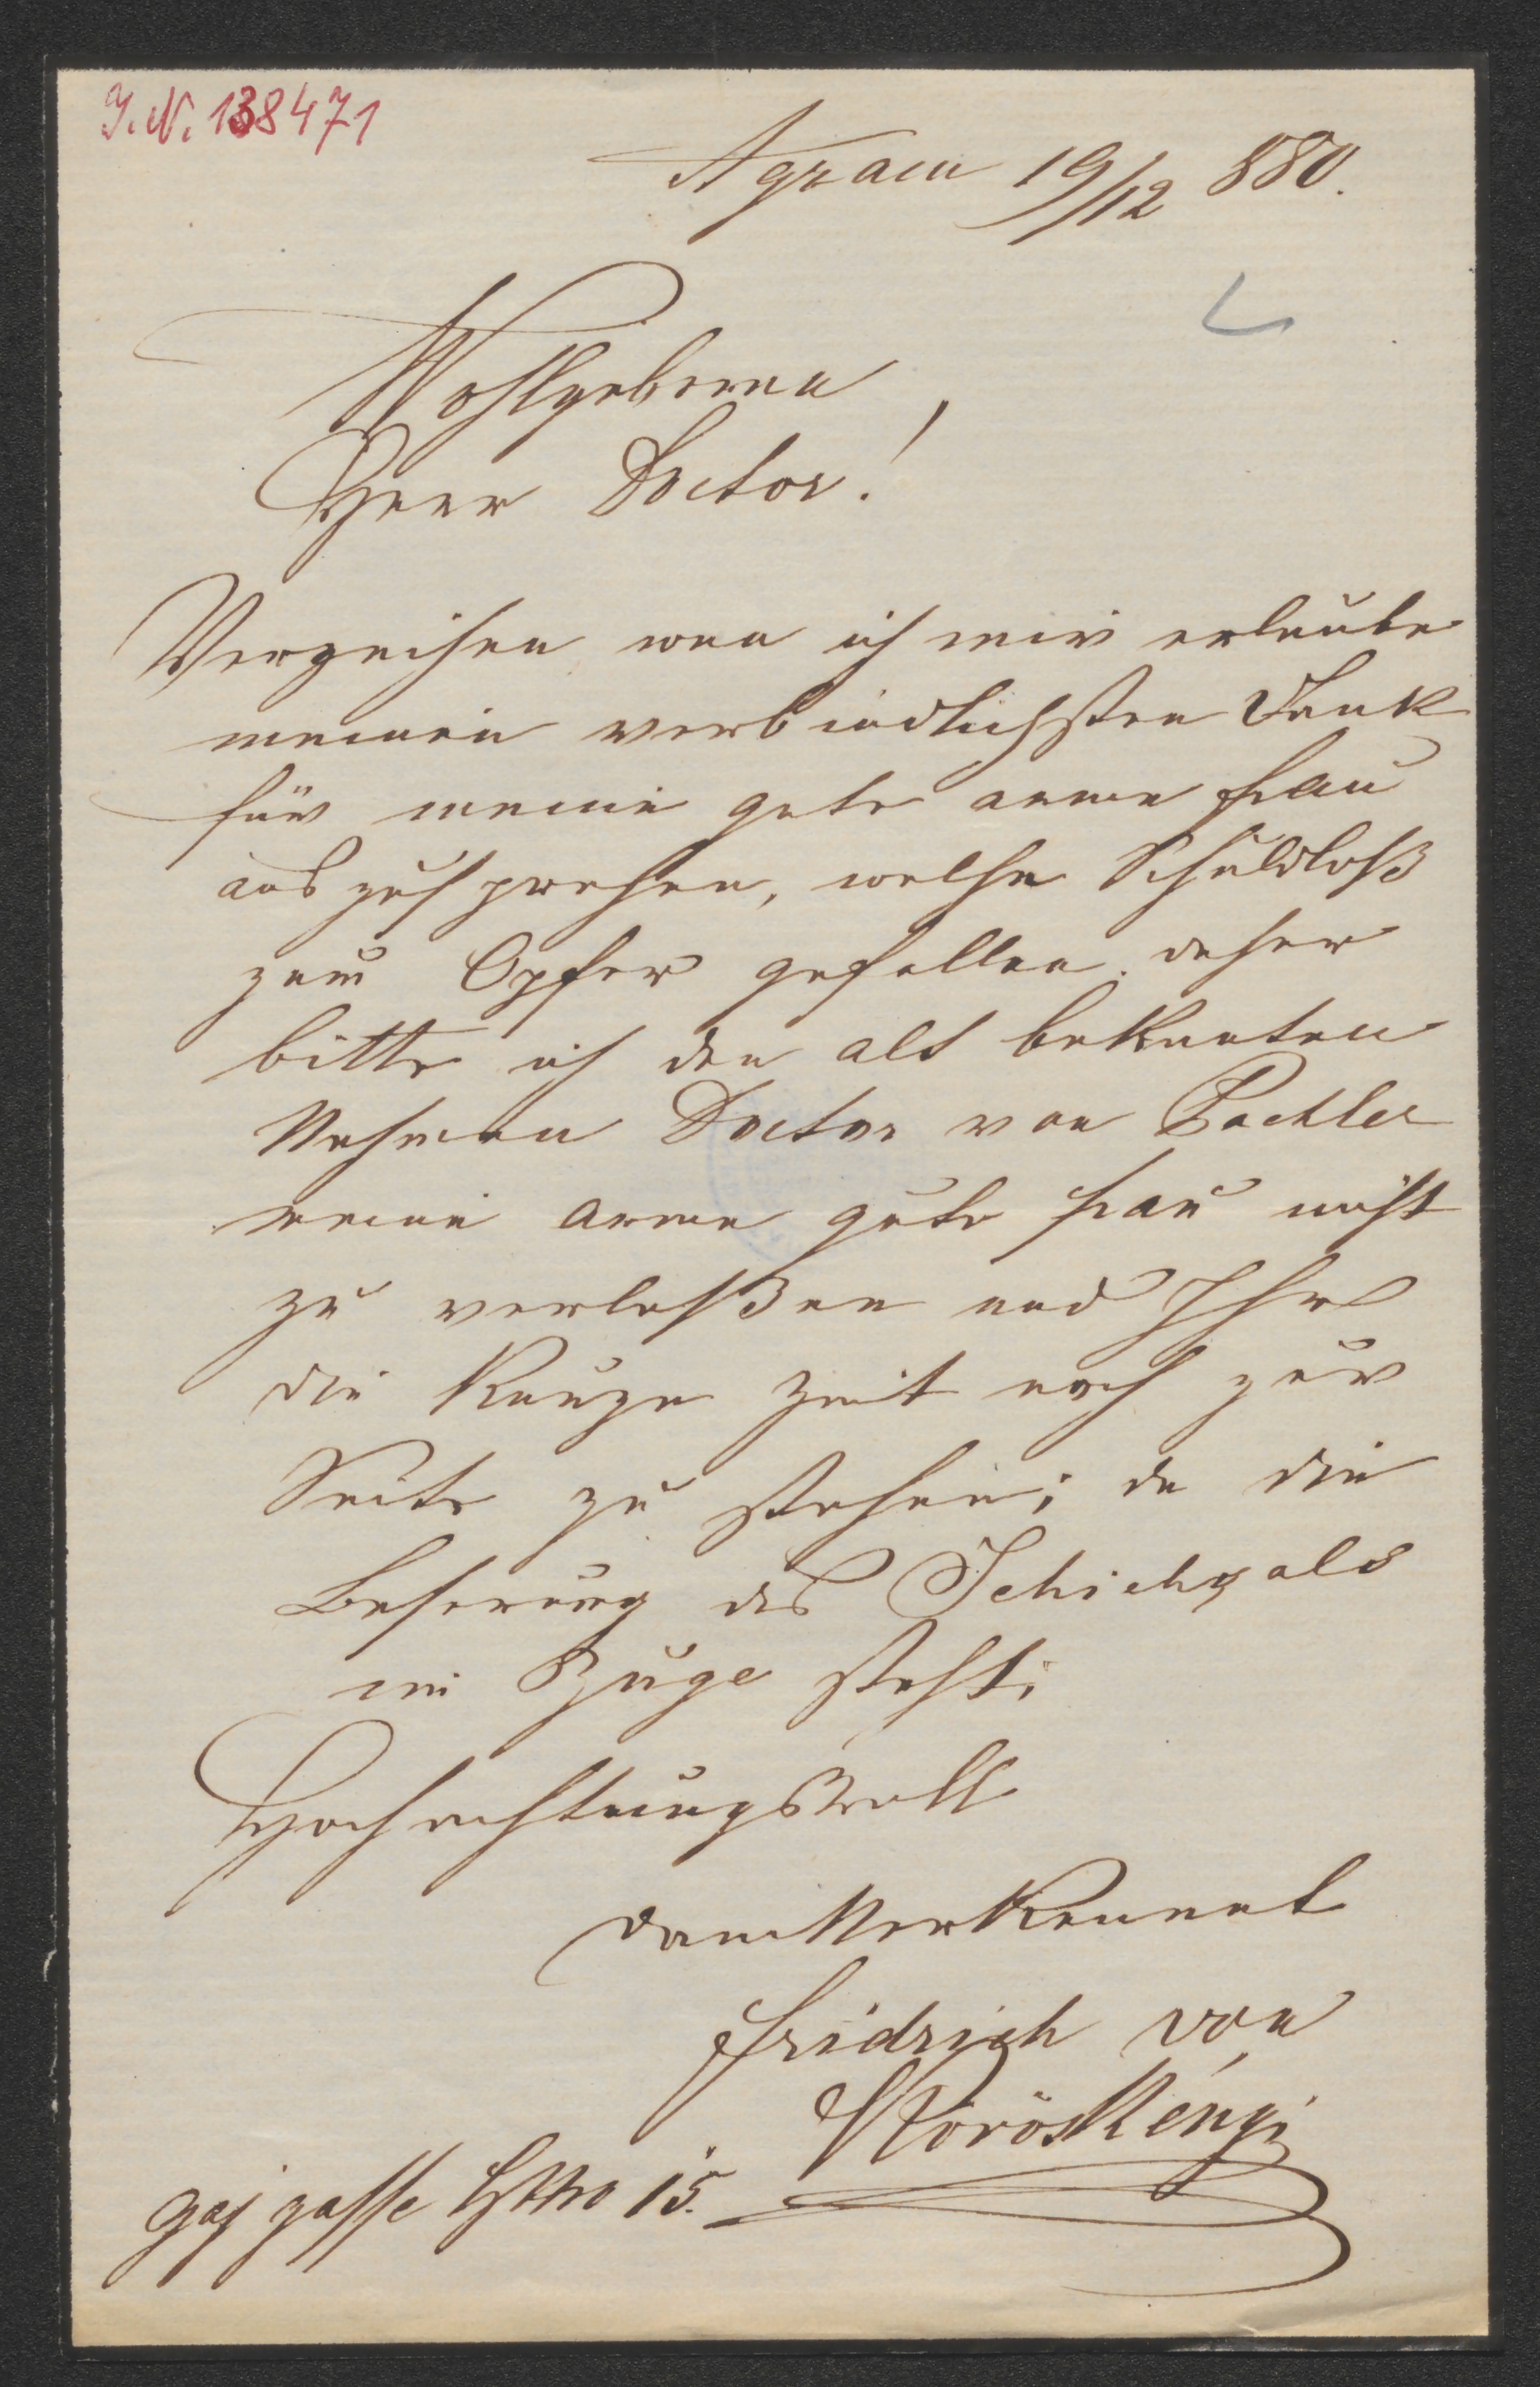 J. N. 138471
Agram 19/12 880.
Wohlgeborenen
Herr Doctor!
Verzeihen wen ich mir erlaube
meinen verbindlichsten Dank
für meine gute arme Frau
aus zusprechen, welche Schuldloß
zum Opfer gefallen. daher
bitte ich den alt bekanten
Nahmen Doctor von Pachler
meine arme gute Frau nicht
zu verlaßen und Ihr
die Kurze Zeit noch zur
Seite zu stehen; da die
Beserung des Schicksals
im Zuge steht.
Hochachtungsvoll
Fridrich von
Vörös
gaj gasse HNro 15.